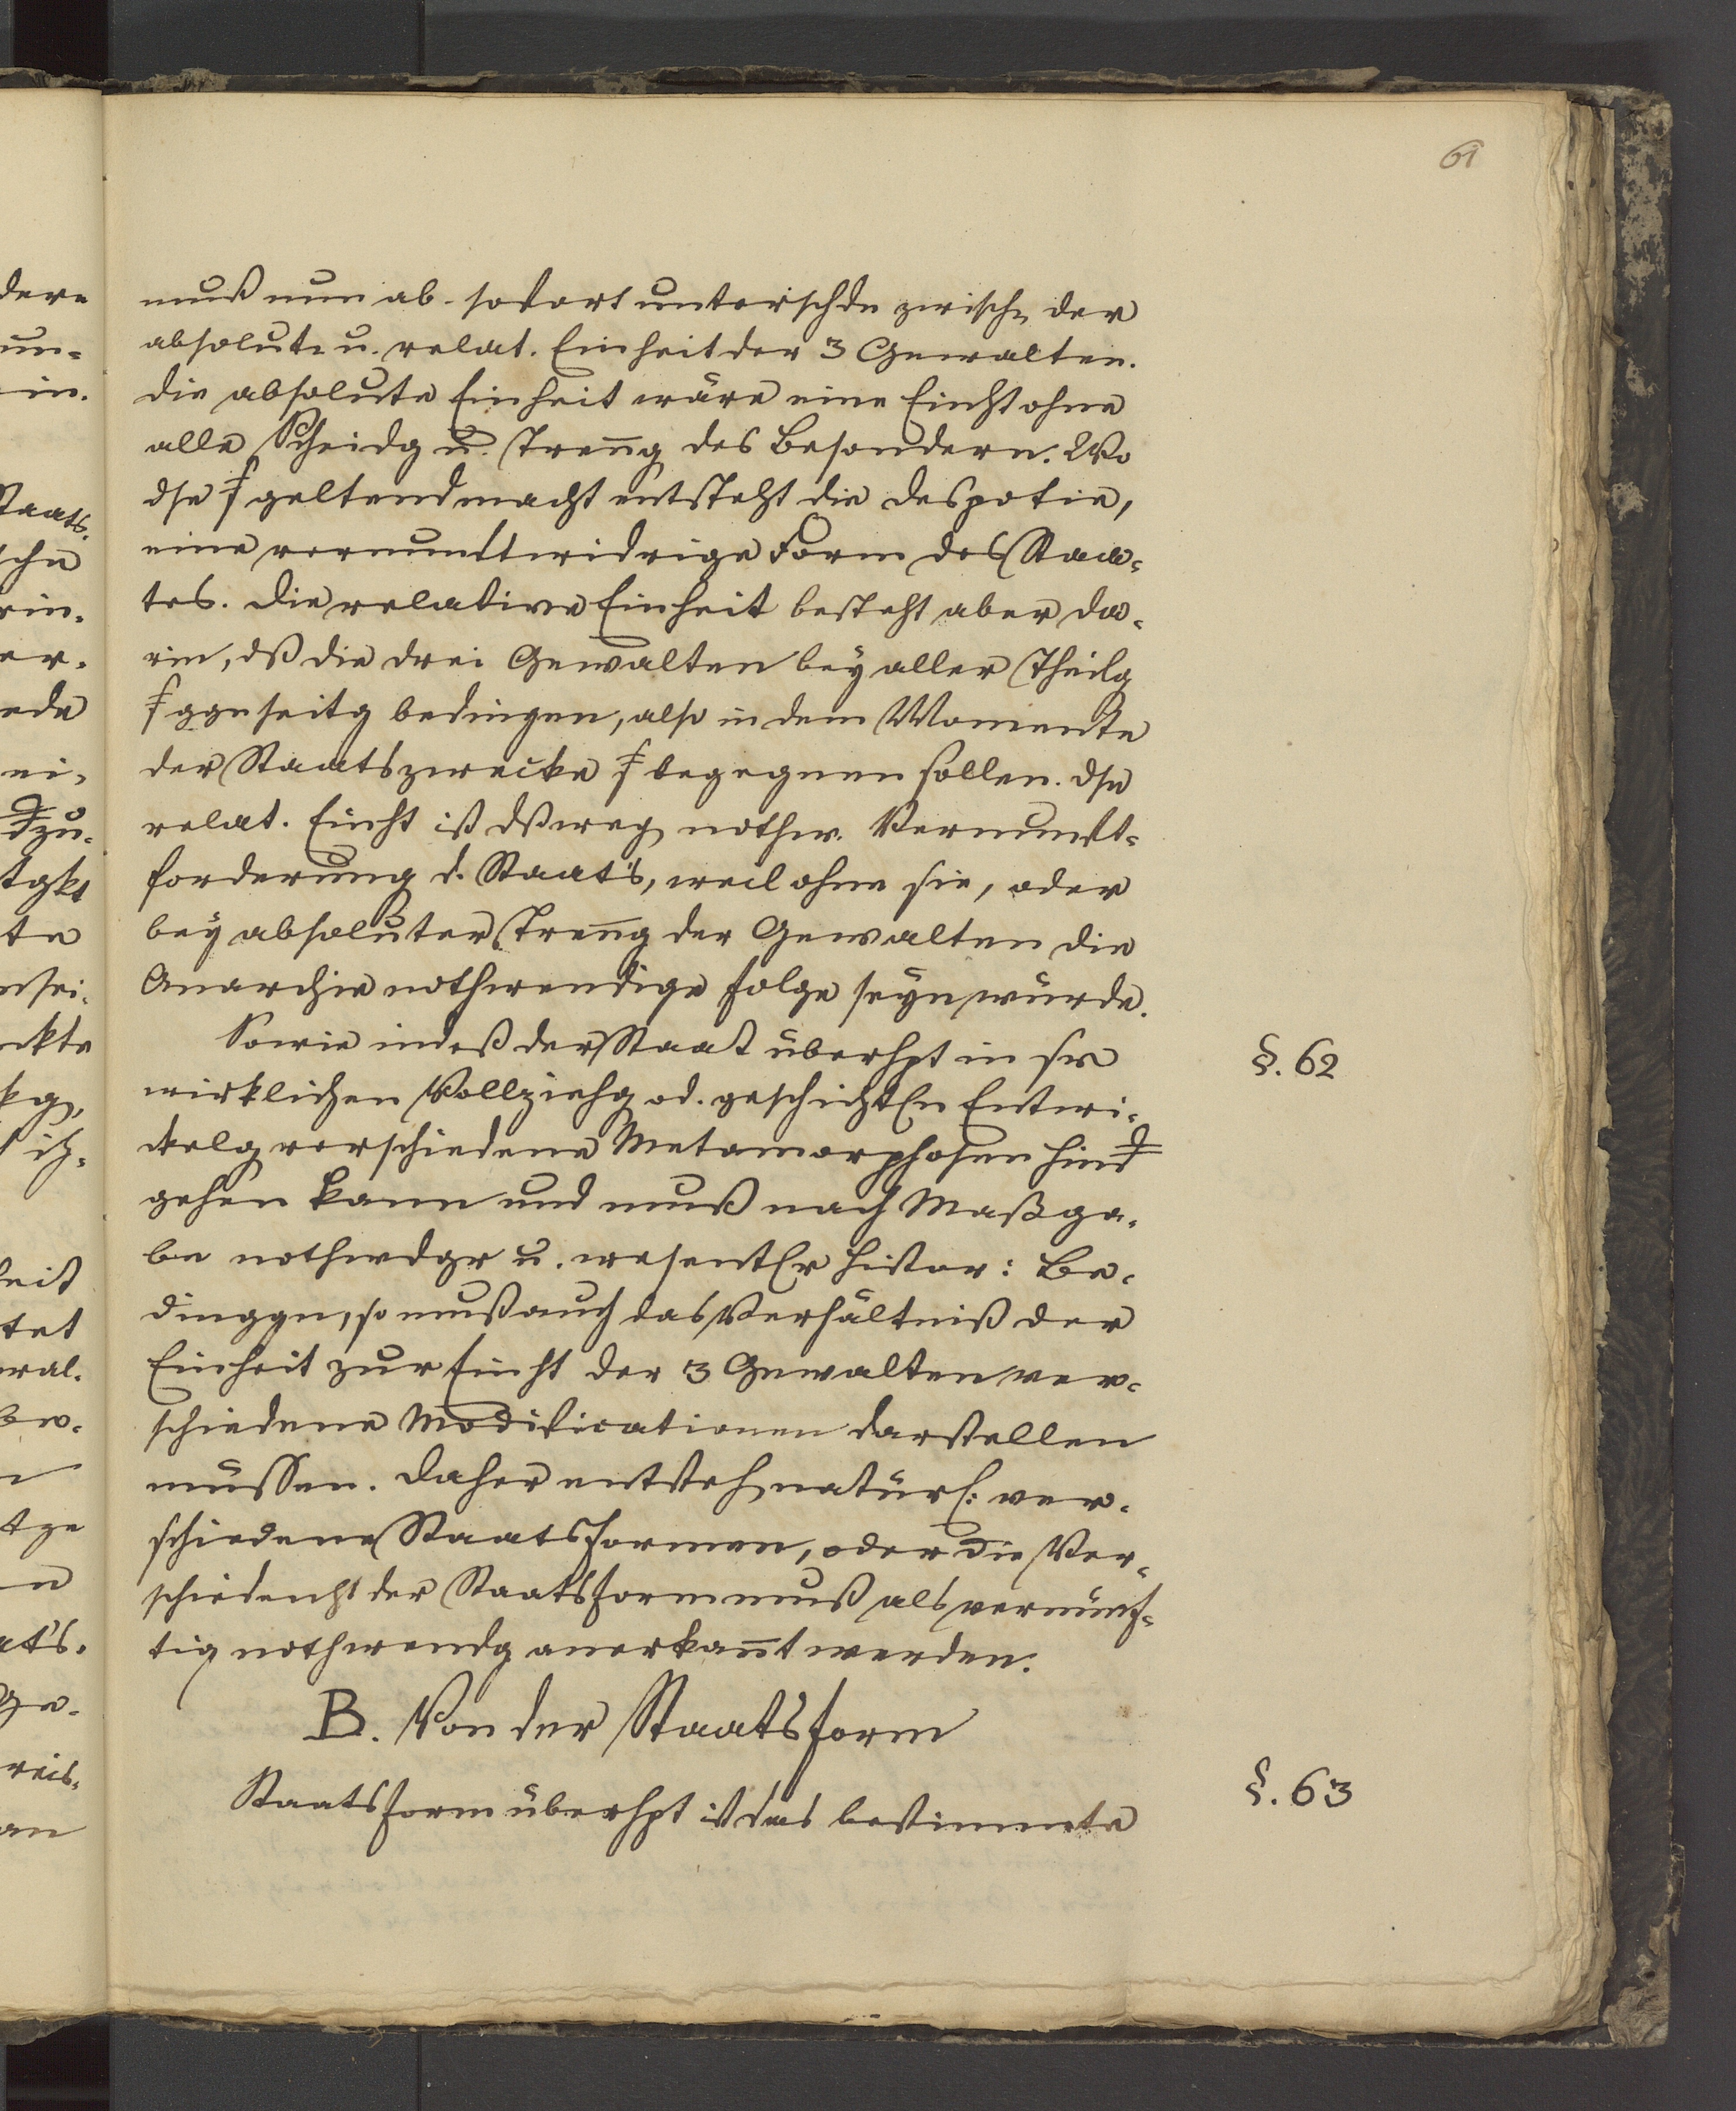 61
muß nun ab. sofort unterschdn zwischn der
absolutn u. relat. Einheit der 3 Gewalten.
die absolute Einheit wäre eine Einht ohne
alle Scheidg u. Treng des Besondern. Wo
dse geltend macht entsteht die Despotie,
eine vernunftwidrige Form des Staa-
tes. Die relative Einheit besteht aber da-
rin, dß die drei Gewalten bey aller Theilg
ggnseitg bedingen, also in dem Momente
der Staatszwecke begegnen sollen. Dse
relat. Einht ist dßweg nothw. Vernunft-
forderung d. Staat's, weil ohne sie, oder
bey absoluter Treng der Gewalten die
Anarchie nothwendige Folge seyn würde.
§. 62
Sowie indeß der Staat überhpt in sr
wirklichen Vollziehg od. geschichtln Entwi-
ckelg verschiedene Metamorphosen hind
gehen kann und muß nach Maßga-
be nothwdgr u. wesentlr histor: Be-
dinggn, so muß auch das Verhältniß der
Einheit zur Einht der 3 Gewalten ver-
schiedene Modificationen darstellen
müssen. Daher entsteh natürl: ver-
schiedene Staatsformen, oder die Ver-
schiedenht der Staatsform muß als vernünf-
tig nothwendg anerkant werden.
B. Von der Staatsform
§. 63
Staatsform überhpt ist das bestimmte